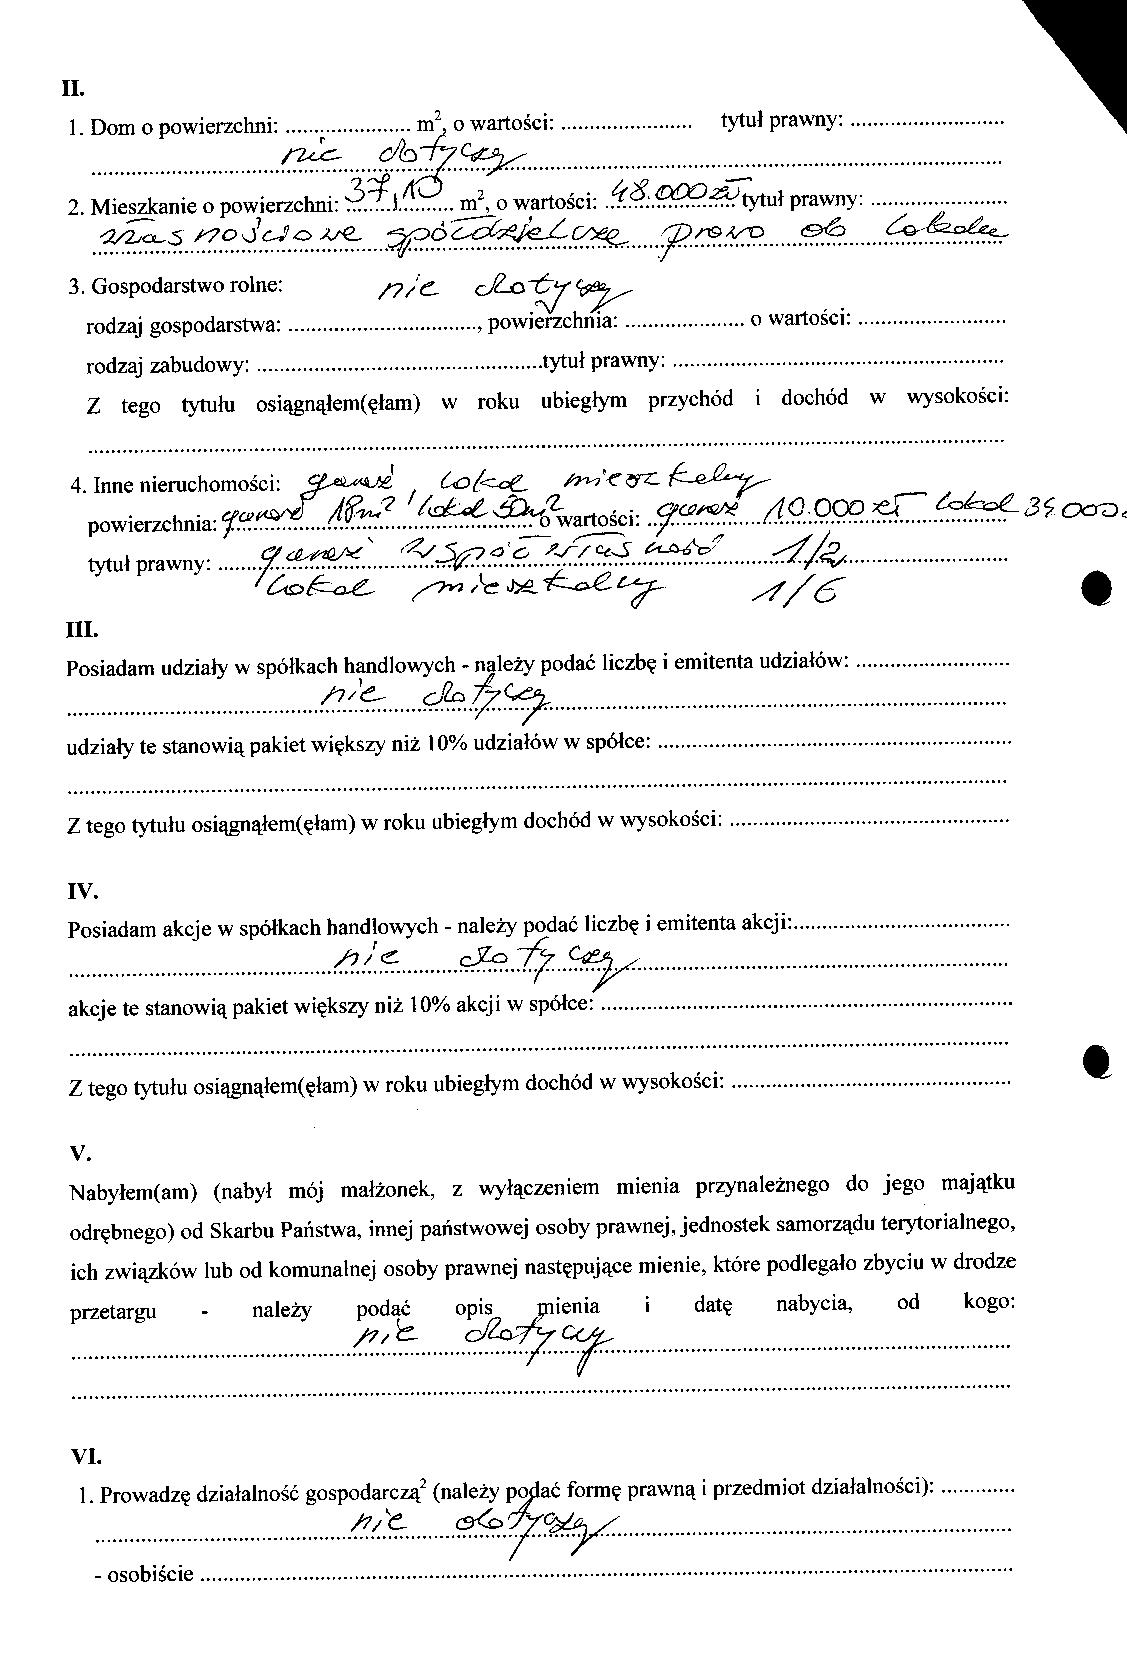 II.
1. Dom o powierzchni: ...................... m², o wartości: ....................... tytuł prawny: ...........................
nie dotyczy
2. Mieszkanie o powierzchni: 37,10 m², o wartości: 48.000 zł tytuł prawny: ........................
własnościowe spółdzielcze prawo do lokalu
3. Gospodarstwo rolne: nie dotyczy
rodzaj gospodarstwa: .................................., powierzchnia: ..................... o wartości: ..........................
rodzaj zabudowy: ..................................................tytuł prawny: ..........................................................
Z tego tytułu osiągnąłem(ęłam) w roku ubiegłym przychód i dochód w wysokości:
................................................................................
4. Inne nieruchomości: garaż, lokal mieszkalny
powierzchnia: garaż 18m² lokal 50m² o wartości: garaż 10.000 zł lokal 39.000
tytuł prawny: garaż współwłasność 1/2
lokal mieszkalny 1/6
III.
Posiadam udziały w spółkach handlowych - należy podać liczbę i emitenta udziałów: ...........................
nie dotyczy
udziały te stanowią pakiet większy niż 10% udziałów w spółce: ..............................................................
................................................................................
Z tego tytułu osiągnąłem(ęłam) w roku ubiegłym dochód w wysokości: .................................................
IV.
Posiadam akcje w spółkach handlowych - należy podać liczbę i emitenta akcji:......................................
nie dotyczy
akcje te stanowią pakiet większy niż 10% akcji w spółce: ........................................................................
................................................................................
Z tego tytułu osiągnąłem(ęłam) w roku ubiegłym dochód w wysokości: .................................................
V.
Nabyłem(am) (nabył mój małżonek, z wyłączeniem mienia przynależnego do jego majątku
odrębnego) od Skarbu Państwa, innej państwowej osoby prawnej, jednostek samorządu terytorialnego,
ich związków lub od komunalnej osoby prawnej następujące mienie, które podlegało zbyciu w drodze
przetargu - należy podać opis mienia i datę nabycia, od kogo:
nie dotyczy
................................................................................
VI.
1. Prowadzę działalność gospodarczą² (należy podać formę prawną i przedmiot działalności): .............
nie dotyczy
- osobiście ................................................................................